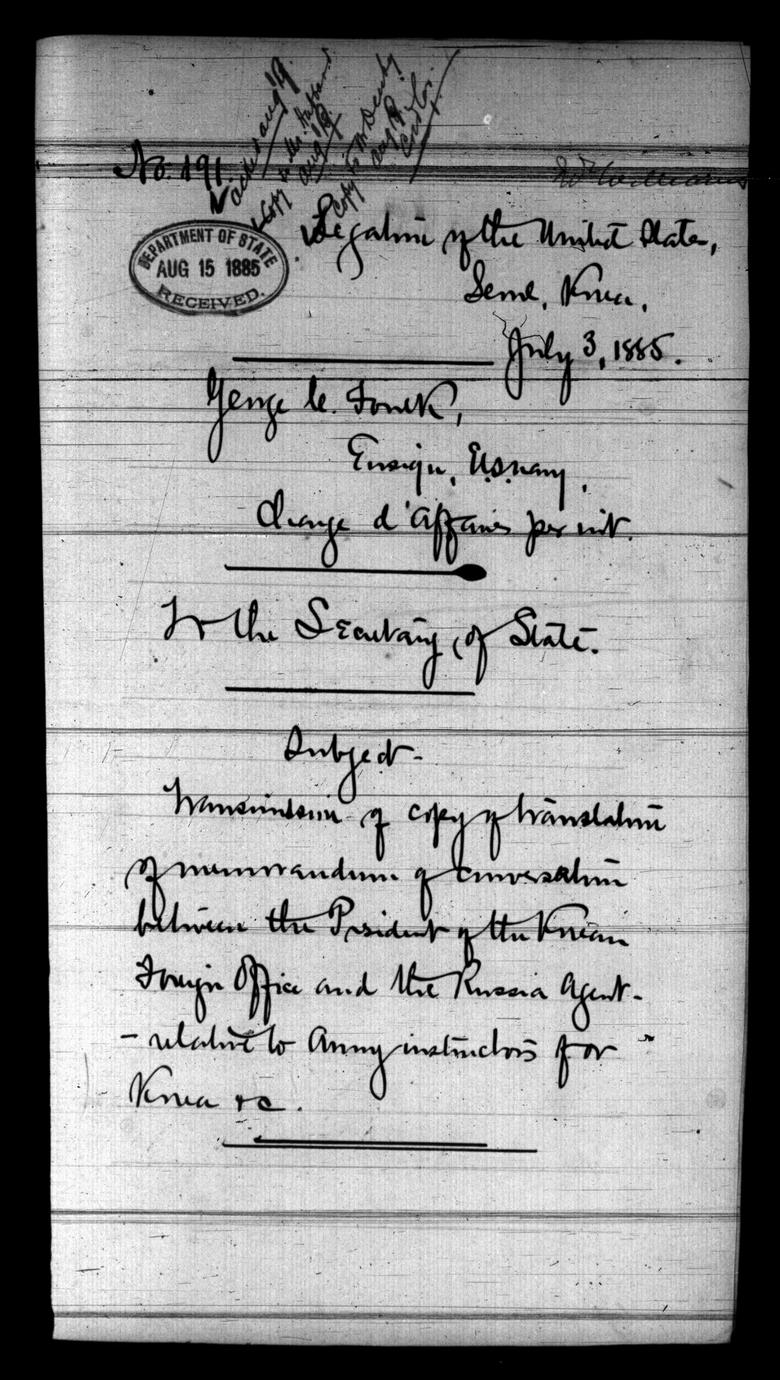 Ack'd Aug '19.
Copy to Mr. Hubbard
Aug '19
Copy to Mr Denby
Aug 19.
No. 191.
Mr Williams
Legation of the United States,
DEPARTMENT OF STATE
AUG 15 1885
RECEIVED.
Seoul, Korea,
July 3, 1885.
George C. Foulk,
Ensign, U.S. Navy,
Charge d'Affaires per int.
To the Secretary of State.
Subject-
Transmission of copy of translation
of memorandum of conversation
between the President of the Korean
Foreign Office and the Russia Agent-
- relative to Army instructors for
Korea &c.